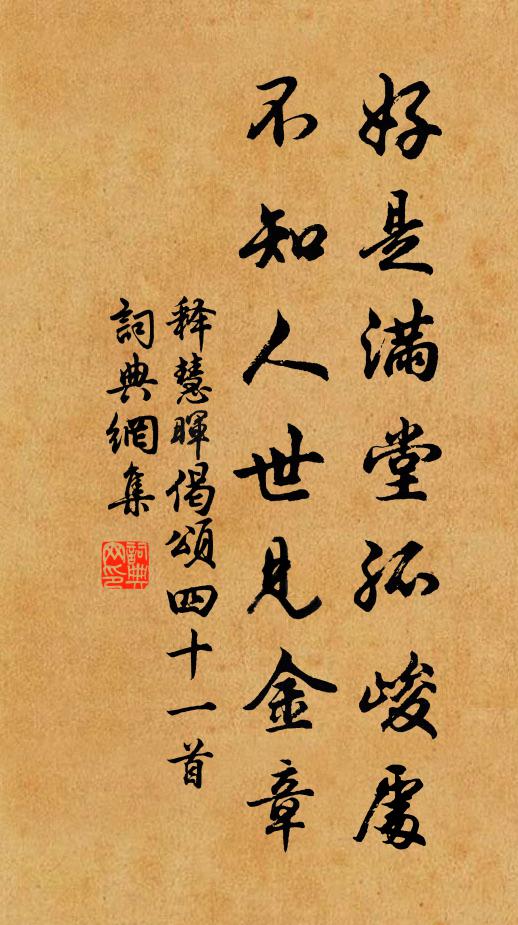 好是滿堂孤峻處
不知人世見金章
释慧暉偈頌四十一首
詞典網集
詞典
网印